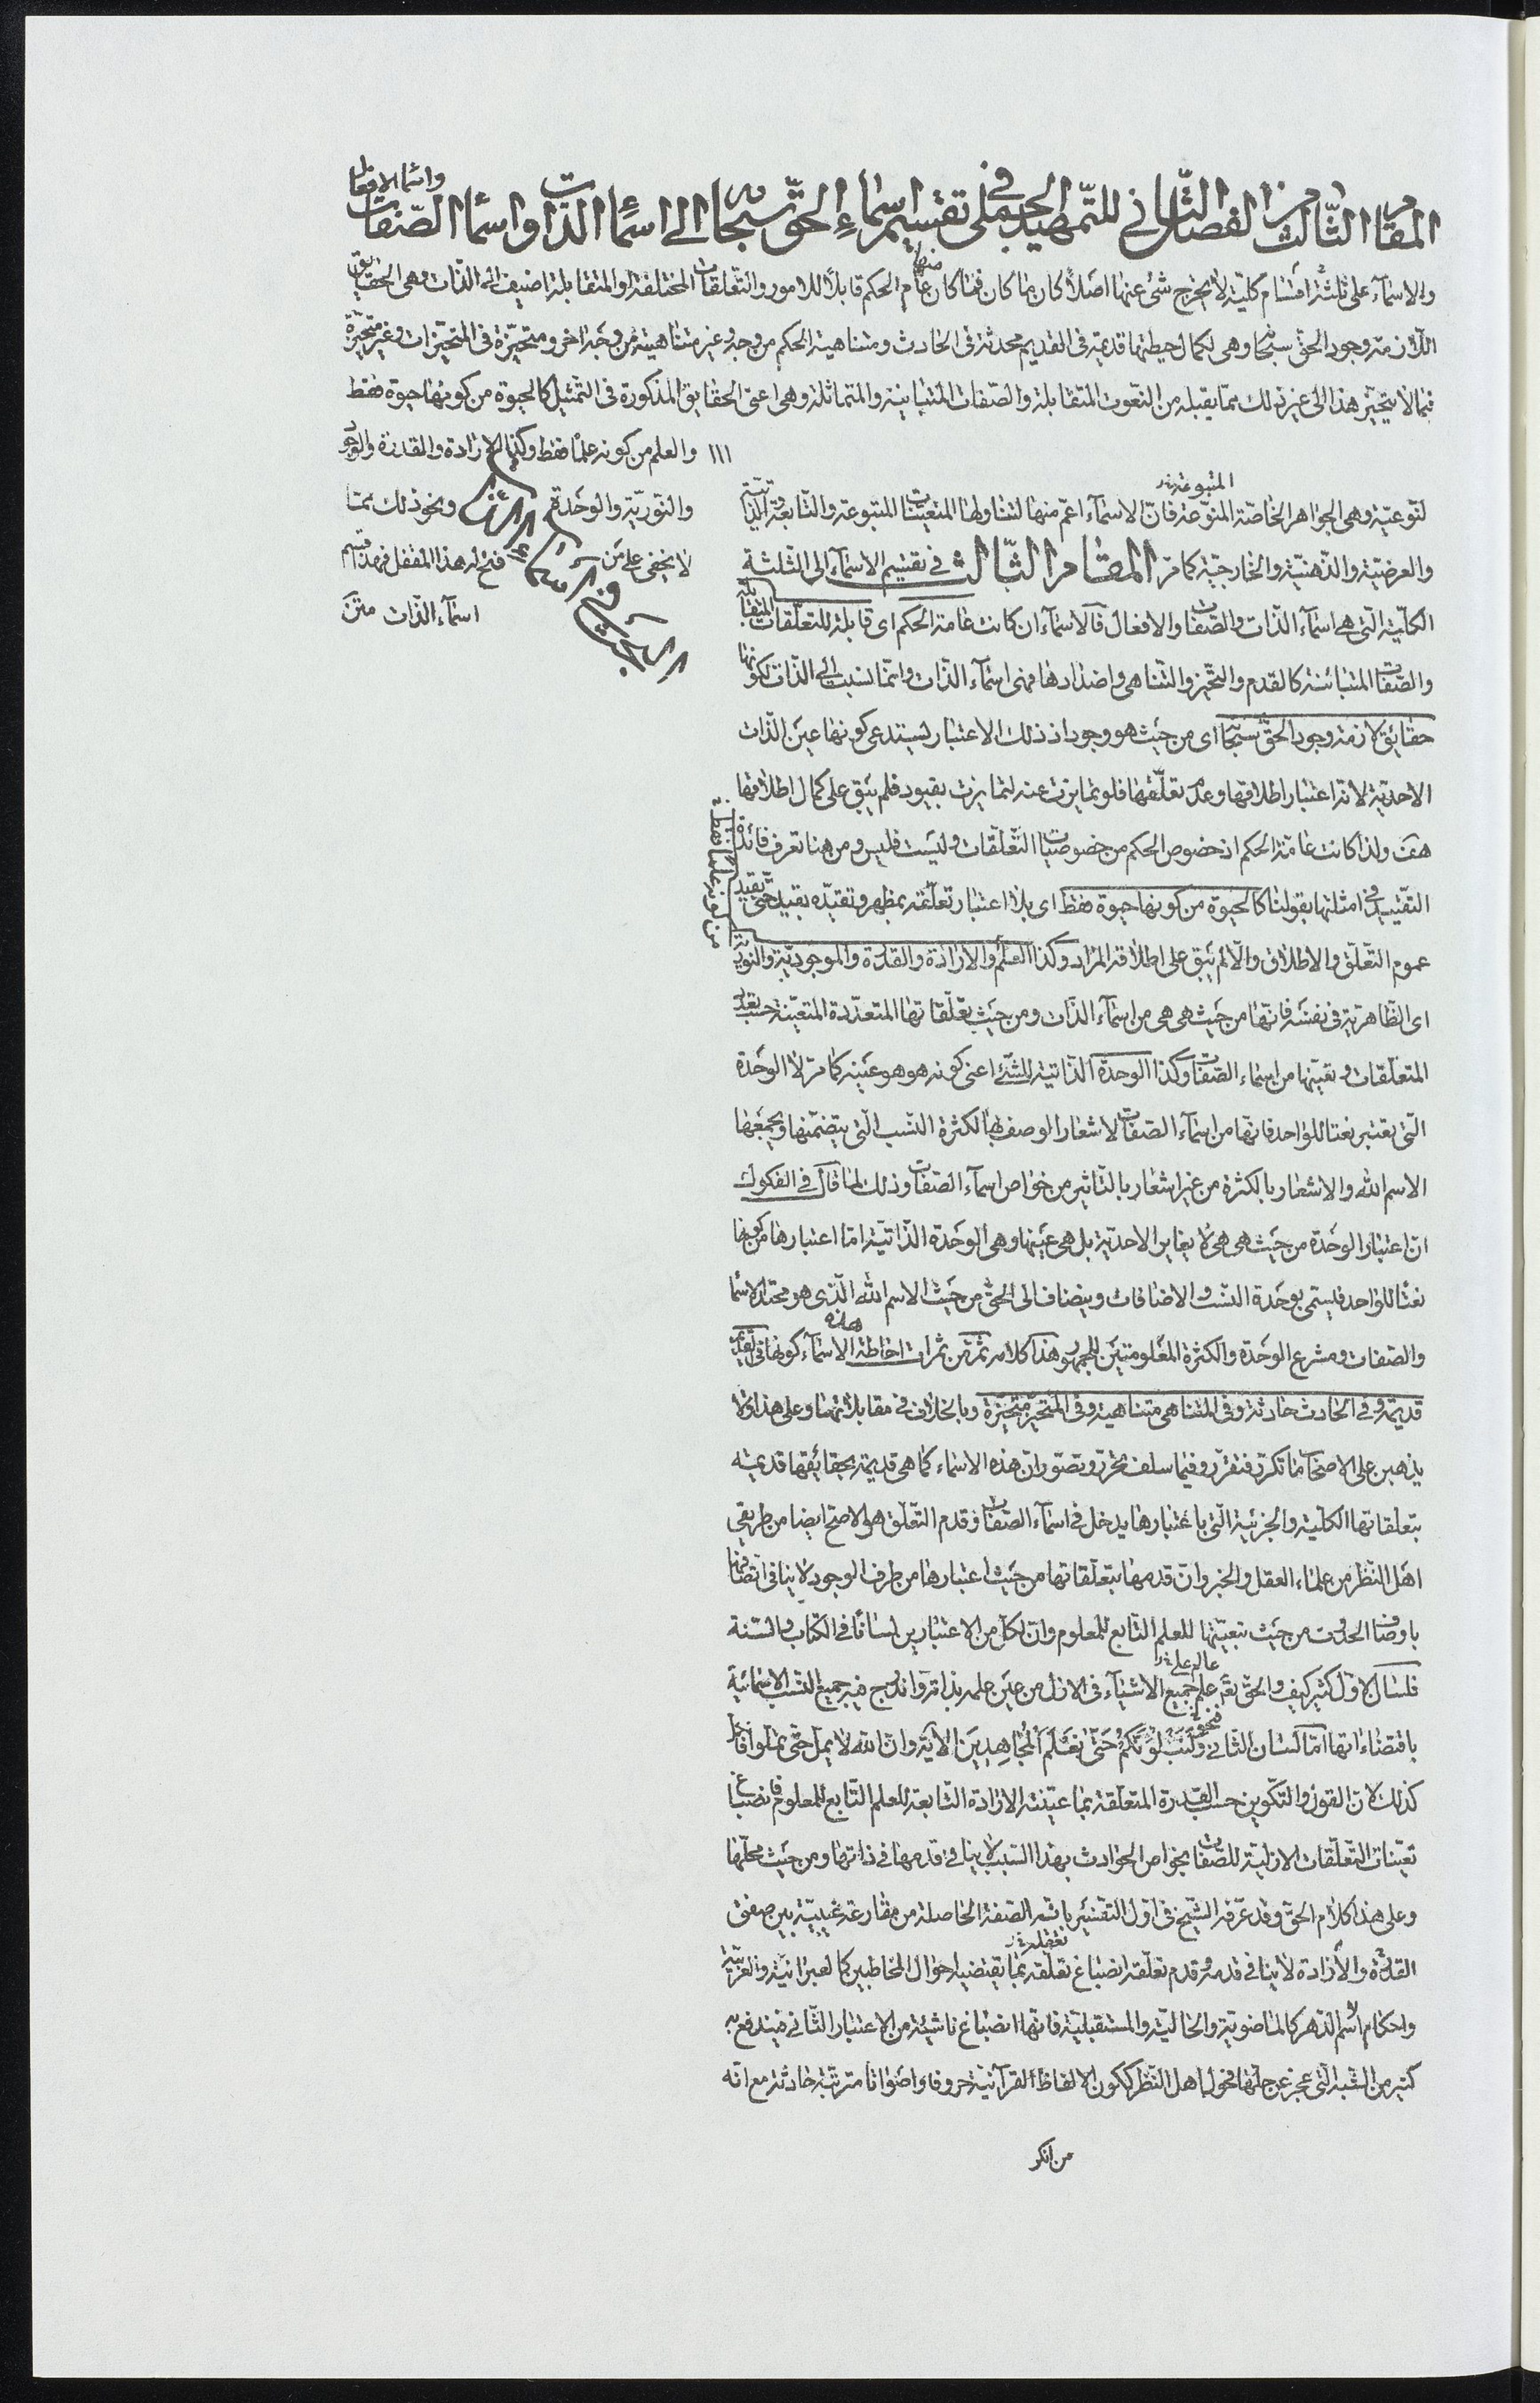 المقام الثالث من الفصل الثاني للتمهيد الجملي في تقسيم اسماء الحق سبحانه الى اسماء الذات واسماء الصفات واسماء الافعال
والاسماء على ثلثة اقسام كلية لا يخرج شئ عنها اصلا كان ما كان فما كان منها عام الحكم قابلا للامور والتعلقات المختلفة او المتقابلة اضيف الى الذات وهى الحقايق
اللازمة وجود الحق سبحانه وهى لكمال حيطتها قديمة فى القديم محدثة فى الحادث ومتناهية الحكم من وجه وغير متناهية من وجه اخر ومتحيزة فى المتحيزات وغير متحيزة
فيما لا يتحيز هذا الى غير ذلك مما يقبله من النعوت المتقابلة والصفات المتباينة والمتماثلة وهى اعنى الحقايق المذكورة فى التمثيل كالحيوة من كونها حيوة فقط
١١١ والعلم من كونه علما فقط وكذا الارادة والقدرة والوجود
والنورية والوحدة ونحو ذلك مما
لا يخفى على من فتح له هذا المقفل فهذا قسم
اسماء الذات متن
المتبوعة
لنوعية وهى الجواهر الخاصة المنوعة فان الاسماء اعم منها لتناولها المتعينات المتبوعة والتابعة الذاتية
والعرضية والذهنية والخارجية كما مر المقام الثالث فى تقسيم الاسماء الى الثلثة
الكلية التى هى اسماء الذات والصفات والافعال فالاسماء ان كانت عامة الحكم اى قابلة للتعلقات المتقابلة
والصفات المتباينة كالقدم والتحيز والتناهى واضدادها فهى اسماء الذات وانما نسبت الى الذات لكونها
حقايق لازمة وجود الحق سبحانه اى من حيث هو وجود اذ ذلك الاعتبار يستدعى كونها عين الذات
الاحدية لانه اعتبار اطلاقها وعدم تعلقها فلو تمايزت عنه لتمايزت بقيود فلم يبق على كمال اطلاقها
هف ولذا كانت عامة الحكم اذ خصوص الحكم من خصوصيات التعلقات وليست فليس ومن هنا تعرف فائدة
التقييد فى امثلتها بقولنا كالحيوة من كونها حيوة فقط اى بلا اعتبار تعلقه بمظهر وتقيده بقيد حتى بقيد
عموم التعلق والاطلاق والا لم يبق على اطلاقه المراد وكذا العلم والارادة والقدرة والموجودية والنورية
من كونه علما فقط
اى الظاهرية فى نفسه فانها من حيث هى هى من اسماء الذات ومن حيث تعلقاتها المتعددة المتعينة حسب تعدد
المتعلقات وتعينها من اسماء الصفات وكذا الوحدة الذاتية للشئ اعنى كونه هو هو عينه كما مر لا الوحدة
التى يعتبر نعتا للواحد فانها من اسماء الصفات لاشعار الوصف بها لكثرة النسب التى يتضمنها ويجمعها
الاسم الله والاشعار بالكثرة من غير اشعار بالتاثير من خواص اسماء الصفات وذلك لما قال فى الفكوك
ان اعتبار الوحدة من حيث هى هى لا يغاير الاحدية بل هى عينها وهى الوحدة الذاتية اما اعتبارها من كونها
نعتا للواحد فيسمى بوحدة النسب والاضافات ويضاف الى الحق من حيث الاسم الله الذى هو محتد الاسماء
والصفات ومشرع الوحدة والكثرة المعلومتين للجمهور هذا كلامه ثم من ثمرات احاطة هذه الاسماء كونها فى القديم
قديمة وفى الحادث حادثة وفى المتناهى متناهية وفى المتحيز متحيزة وبالخلاف فى مقابلاتها وعلى هذا ولا
يذهبن على الاصحاب ما تكرر فتقرر وفيما سلف تحرر وتصور ان هذه الاسماء كما هى قديمة بحقايقها قديمة
بتعلقاتها الكلية والجزئية التى باعتبارها يدخل فى اسماء الصفات وقدم التعلق هو الاصح ايضا من طريقى
اهل النظر من علماء العقل والخبر وان قدمها بتعلقاتها من حيث اعتبارها من طرف الوجود لا ينافى اتصافها
باوصاف الحدوث من حيث تبعيتها للعلم التابع للمعلوم وان لكل من الاعتبارين لسانا فى الكتاب والسنة
فلسان الاول كثير كيف والحق تع علم جميع الاشياء فى الازل من عين علمه بذاته واندرج فيه جميع النسب الاسمائية
باقتضاءاتها اما لسان الثانى فنحو ولنبلونكم حتى نعلم المجاهدين الاية وان الله لا يمل حتى تملوا
كذلك لان القول والتكوين حسب القدرة المتعلقة بما عينته الارادة التابعة للعلم التابع للمعلوم فانصباغ
تعينات التعلقات الازلية للصفات بخواص الحوادث بهذا السبب لا ينافى قدمها فى ذاتها ومن حيث محلها
وعلى هذا كلام الحق وقد عرفه الشيخ فى اول التفسير بانه الصفة الحاصلة من مقارعة غيبية بين صفتى
القدرة والارادة لا ينافى قدمه وقدم تعلقه انصباغ تعلقه بما يقتضيه احوال المخاطبين كالعبرانية والعربية
واحكام اسم الدهر كالماضوية والحالية والمستقبلية فانها انصباغ ناشئة من الاعتبار الثانى فيندفع به
كثير من الشبه التى عجز عن حلها فحول اهل النظر ككون الالفاظ القرآنية حروفا واصواتا مترتبة حادثة مع انه
من انكر